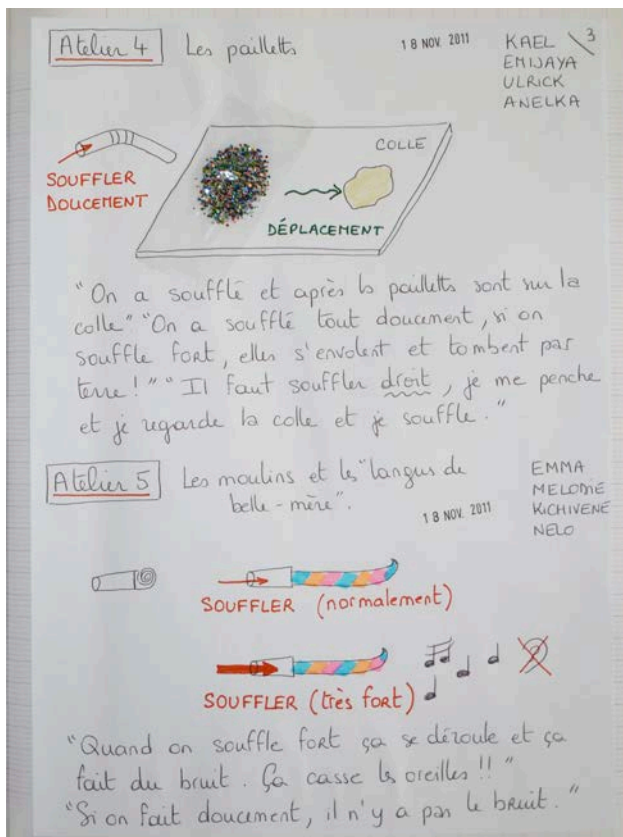 Atelier 4 Les pailletts
18 NOV. 2011
KAEL
EMIJAYA
ULRICK
ANELKA
3
SOUFFLER
DOUCEMENT
COLLE
DÉPLACEMENT
"On a soufflé et après ls pailletts sont sur la
colle" "On a soufflé tout doucement, si on
souffle fort, elles s'envolent et tombent par
terre !" "Il faut souffler droit, je me penche
et je regarde la colle et je souffle."
Atelier 5 Les moulins et ls "langus de
belle-mère".
18 NOV. 2011
EMMA
MELODIE
KICHIVENE
NELO
SOUFFLER (normalement)
SOUFFLER (très fort)
"Quand on souffle fort ça se déroule et ça
fait du bruit. Ça casse ls oreilles !!"
"Si on fait doucement, il n'y a pas le bruit."